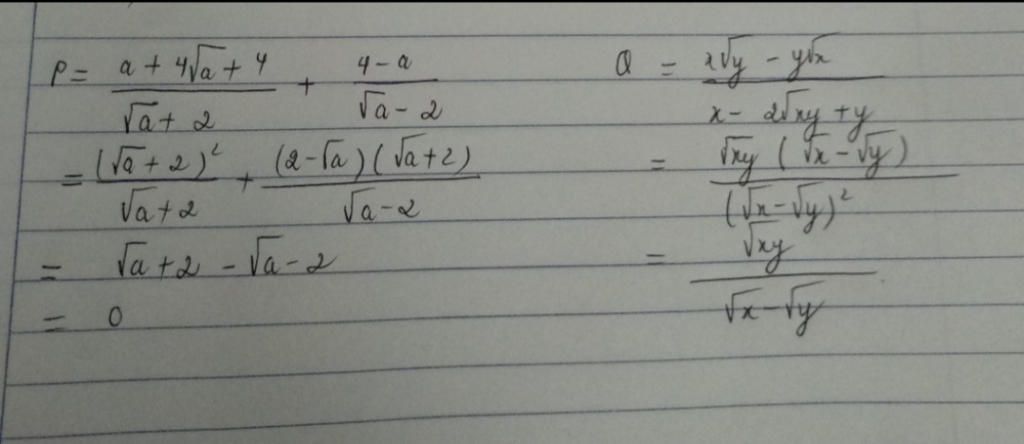 P = (a + 4√a + 4)/(√a + 2) + (4 - a)/(√a - 2)
= (√a + 2)²/(√a + 2) + (2 - √a)(√a + 2)/(√a - 2)
= √a + 2 - √a - 2
= 0
Q = (x√y - y√x)/(x - 2√xy + y)
= √xy (√x - √y)/(√x - √y)²
= √xy/(√x - √y)